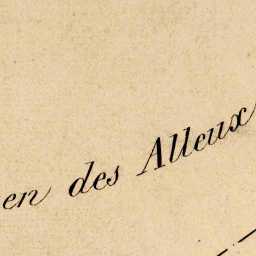 en des Alleux